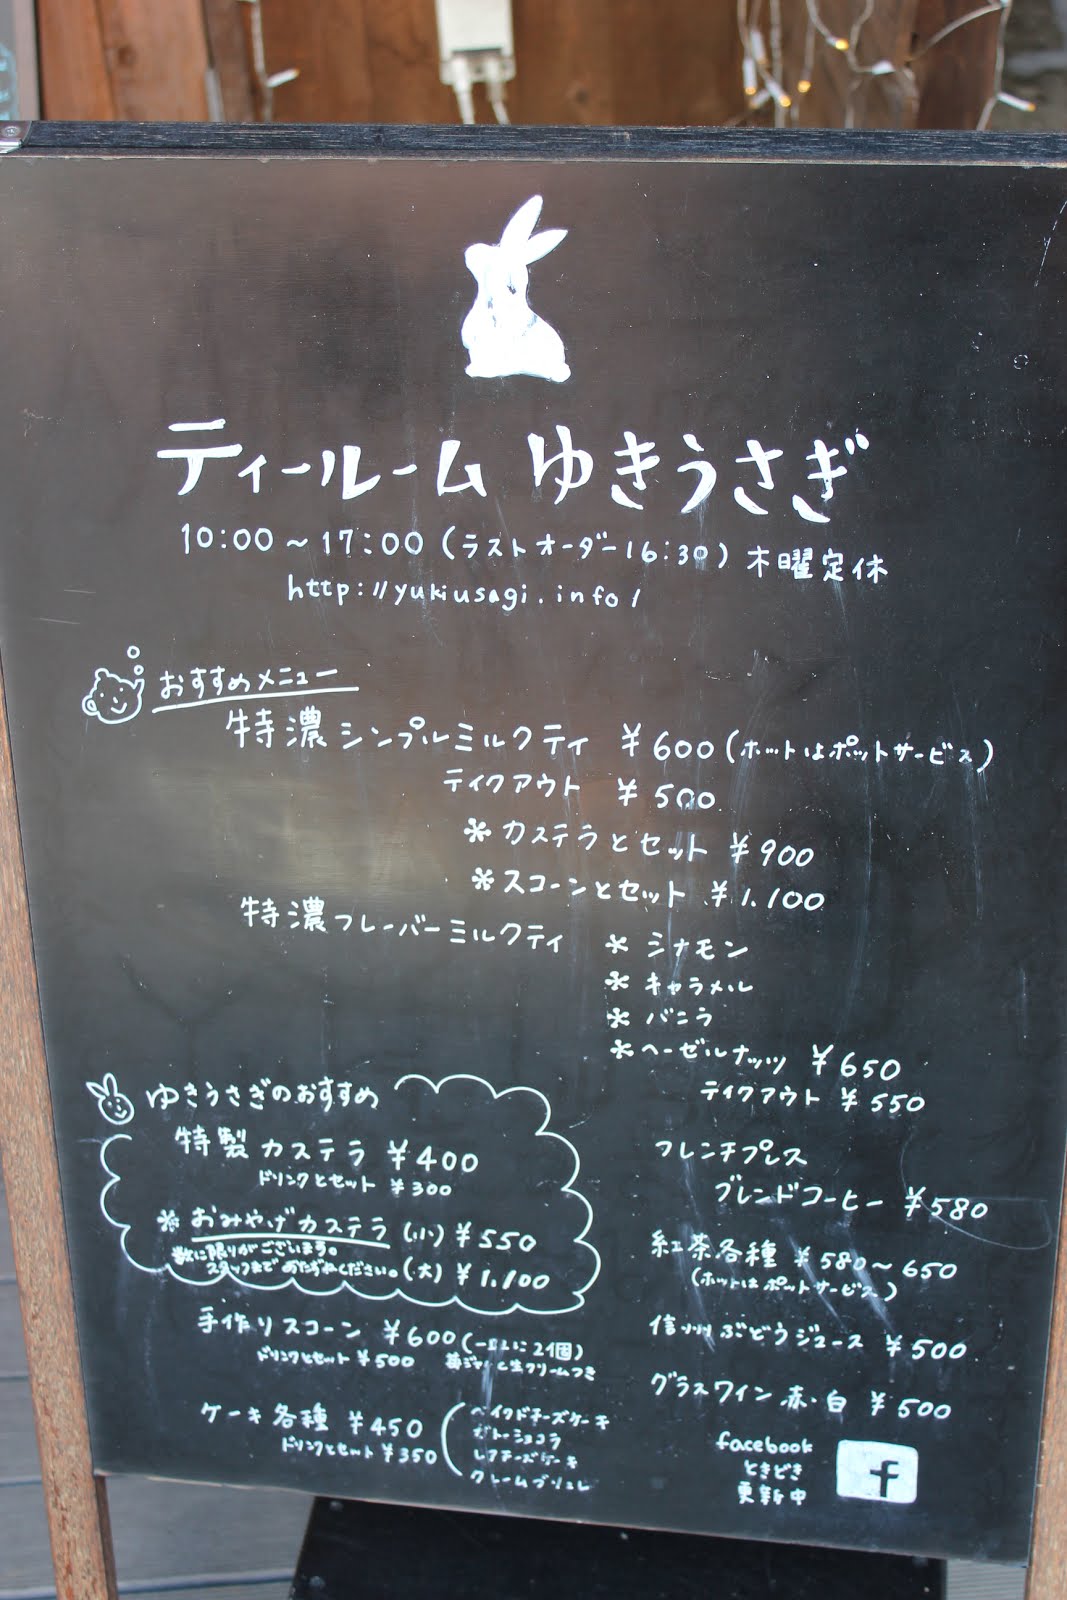 ティールーム ゆきうさぎ
10:00～17:00(ラストオーダー16:30)木曜定休
http://yukiusagi.info/
おすすめメニュー
特濃シンプルミルクティ ¥600(ホットはポットサービス)
テイクアウト ¥500
*カステラとセット ¥900
*スコーンとセット ¥1.100
特濃フレーバーミルクティ
*シナモン
*キャラメル
*バニラ
*ヘーゼルナッツ ¥650
テイクアウト ¥550
ゆきうさぎのおすすめ
特製カステラ ¥400
ドリンクとセット ¥300
*おみやげカステラ (小)¥550
数に限りがございます。
スタッフまでおたずねください。(大)¥1.100
手作りスコーン ¥600(一皿に2個)
ドリンクとセット ¥500 苺ジャムと生クリームつき
ケーキ各種 ¥450
ドリンクとセット ¥350
ベイクドチーズケーキ
ガトーショコラ
レアチーズケーキ
クレームブリュレ
フレンチプレス
ブレンドコーヒー ¥580
紅茶各種 ¥580～650
(ホットはポットサービス)
信州ぶどうジュース ¥500
グラスワイン 赤・白 ¥500
facebook
ときどき
更新中
f